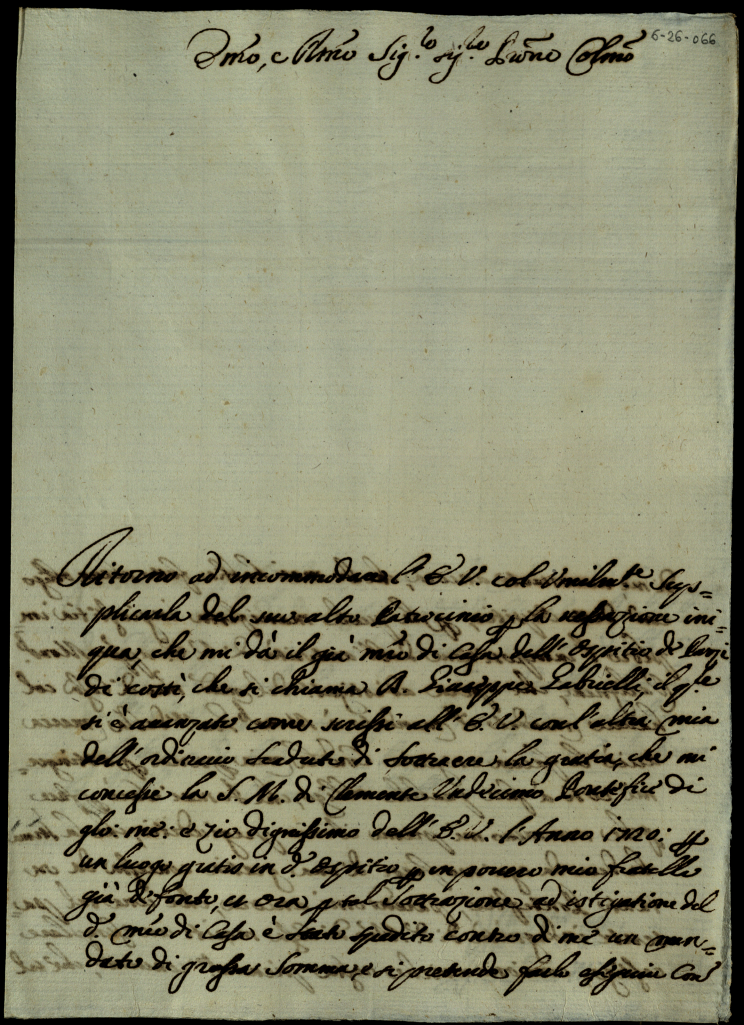 Emo, e Rmo Sig.re Sig.re Prone Colmo
6-26-066
Ritorno ad incommodare l'E. V. col Umilm.te sup=
plicarla del suo alto Patrocinio p la vessazione ini=
qua, che mi dà il già mro di Casa dell'Ospitio de Pazzi
di costì, che si chiama R. Giuseppe Gabrielli, il q.le
si è avanzato come scrissi all'E. V. con l'altra mia
dell'ordinario scaduto di sottraere la gratia, che mi
concesse la S. M. di Clemente Undecimo Pontefice di
glo: me: e Zio dignissimo dell'E. V. l'Anno 1720: p
un luogo gratis in d. Ospitio p un povero mio fratello
già difonto, et ora p tal Sottrazione ad istigatione del
d. mro di Casa è stato spedito contro di me un man=
dato di grossa somma, e si pretende farlo eseguire con